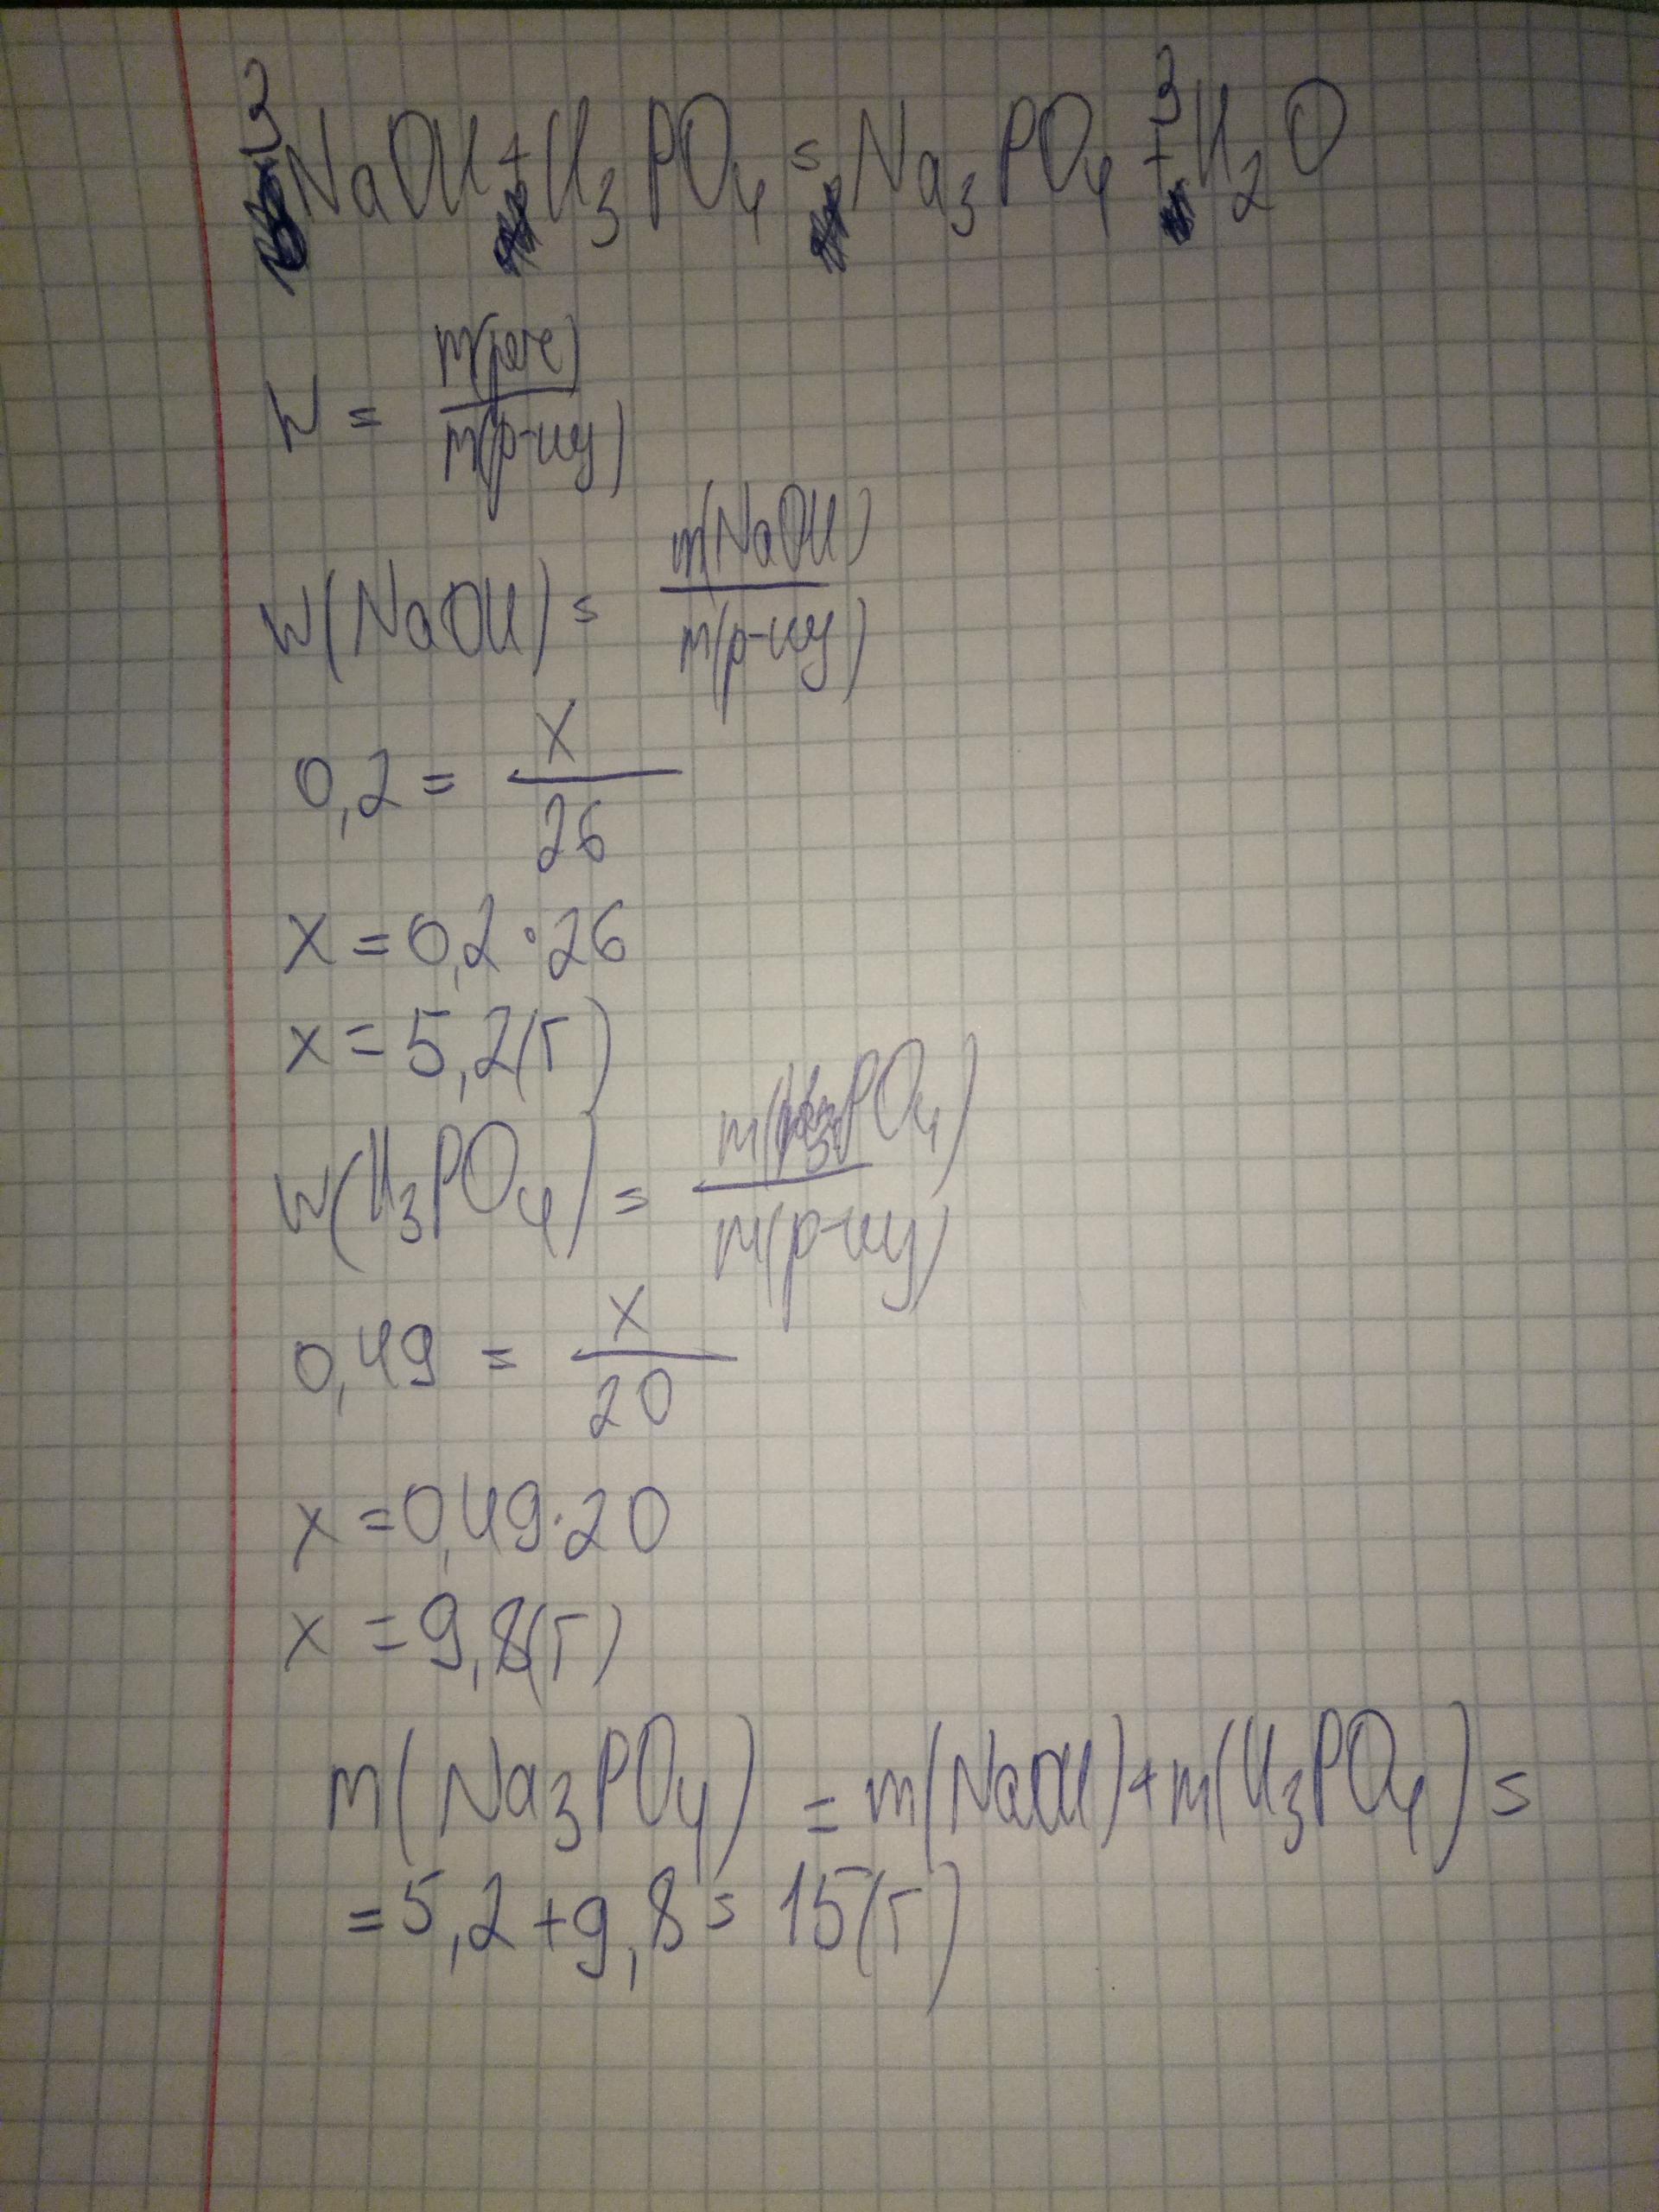 3NaOH + H₃PO₄ = Na₃PO₄ + 3H₂O
W = m(реч) / m(р-ну)
W(NaOH) = m(NaOH) / m(р-ну)
0,2 = x / 26
x = 0,2 · 26
x = 5,2(г)
W(H₃PO₄) = m(H₃PO₄) / m(р-ну)
0,49 = x / 20
x = 0,49 · 20
x = 9,8(г)
m(Na₃PO₄) = m(NaOH) + m(H₃PO₄) =
= 5,2 + 9,8 = 15(г)